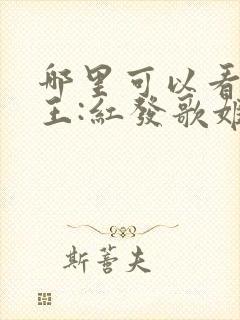 哪里可以看
王:紅發歌姬
斯蓍夫